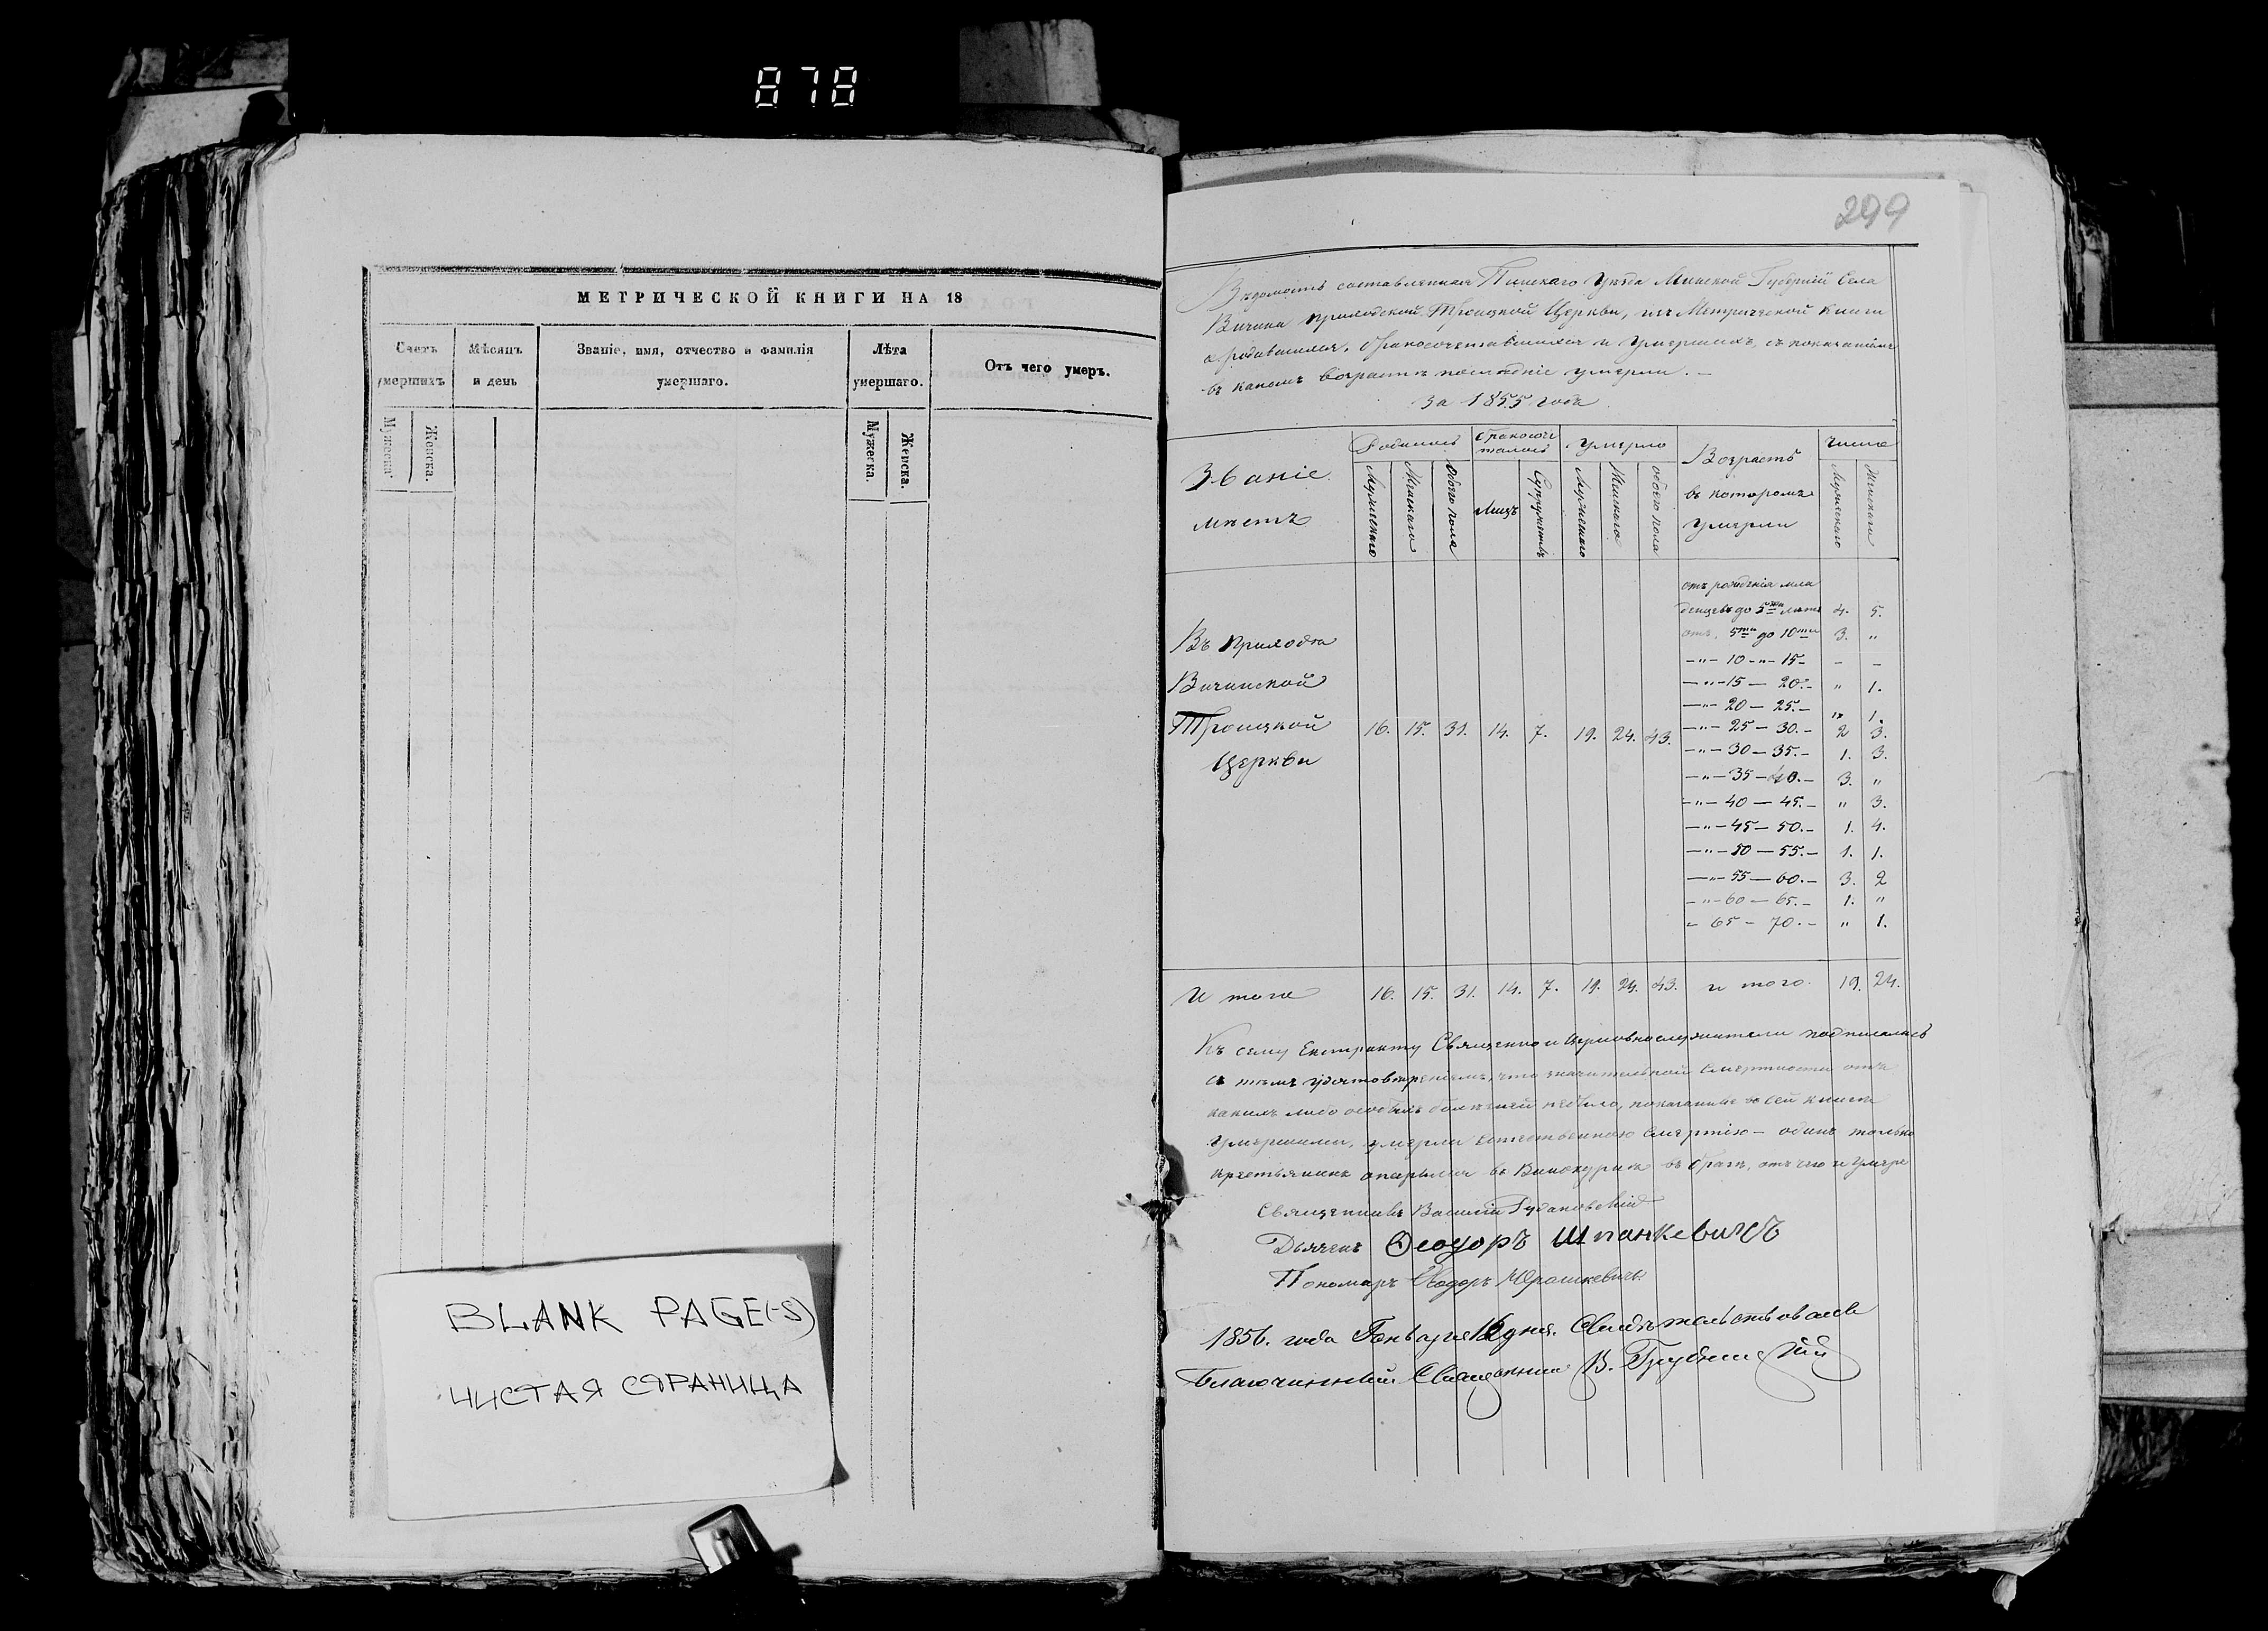 878
МЕТРИЧЕСКОЙ КНИГИ НА 18
Счетъ умершихъ
Мѣсяцъ и день
Званіе, имя, отчество и фамилія умершаго.
Лѣта умершаго.
Отъ чего умеръ.
Мужеска.
Женска.
Мужеска.
Женска.
BLANK PAGE(-S)
ЧИСТАЯ СТРАНИЦА
299
Вѣдомость составленная Пинскаго Уѣзда Минской Губерніи Села
Вичина Приходской Троицкой Церкви, изъ Метрической книги
о родившихся, бракосочетавшихся и умершихъ, съ показаніемъ
въ какомъ возрастѣ послѣдніе умерли. —
За 1855 годъ
Званіе мѣстъ
Родилось
Бракосочеталось
Умерло
Возрастъ въ которомъ умерли
Число
Мужескаго
Женскаго
Обоего пола
Лицъ
Супружествъ
Мужескаго
Женскаго
Обоего пола
Мужескаго
Женскаго
отъ рожденія мла
денцевъ до 5ти лѣтъ 4. 5.
отъ 5ти до 10ти 3. "
Въ Приходѣ
—"— 10 —"— 15 — - -
Вичинской
—"— 15 — 20. — " 1.
—"— 20 — 25. — " 1.
Троицкой 16. 15. 31. 14. 7. 19. 24. 43.
—"— 25 — 30. — 2 3.
Церкви
—"— 30 — 35. — 1. 3.
—"— 35 — 40. — 3. "
—"— 40 — 45. — " 3.
—"— 45 — 50. — 1. 4.
—"— 50 — 55. — 1. 1.
—"— 55 — 60. — 3. 2
—"— 60 — 65. — 1. "
— 65 — 70. — " 1.
И того 16. 15. 31. 14. 7. 19. 24. 43. и того. 19. 24.
Къ сему Екстракту Священно и Церковнослужители подписались
съ тѣмъ удостовѣреніемъ, что значительной смертности отъ
какихъ либо особыхъ болѣзней небыло, показанные въ сей книгѣ
умершими, умерли естественною смертію — одинъ только
крестьянинъ опарился въ Винокурнѣ въ брагѣ, отъ чего и умеръ
Священникъ Василій
Дьячекъ Ѳеодоръ Шпанкевичъ
Пономарь Ѳеодоръ Юрашкевичъ
1856. года Генваря дня. Свидѣтельствовалъ
Благочинный Священникъ В.